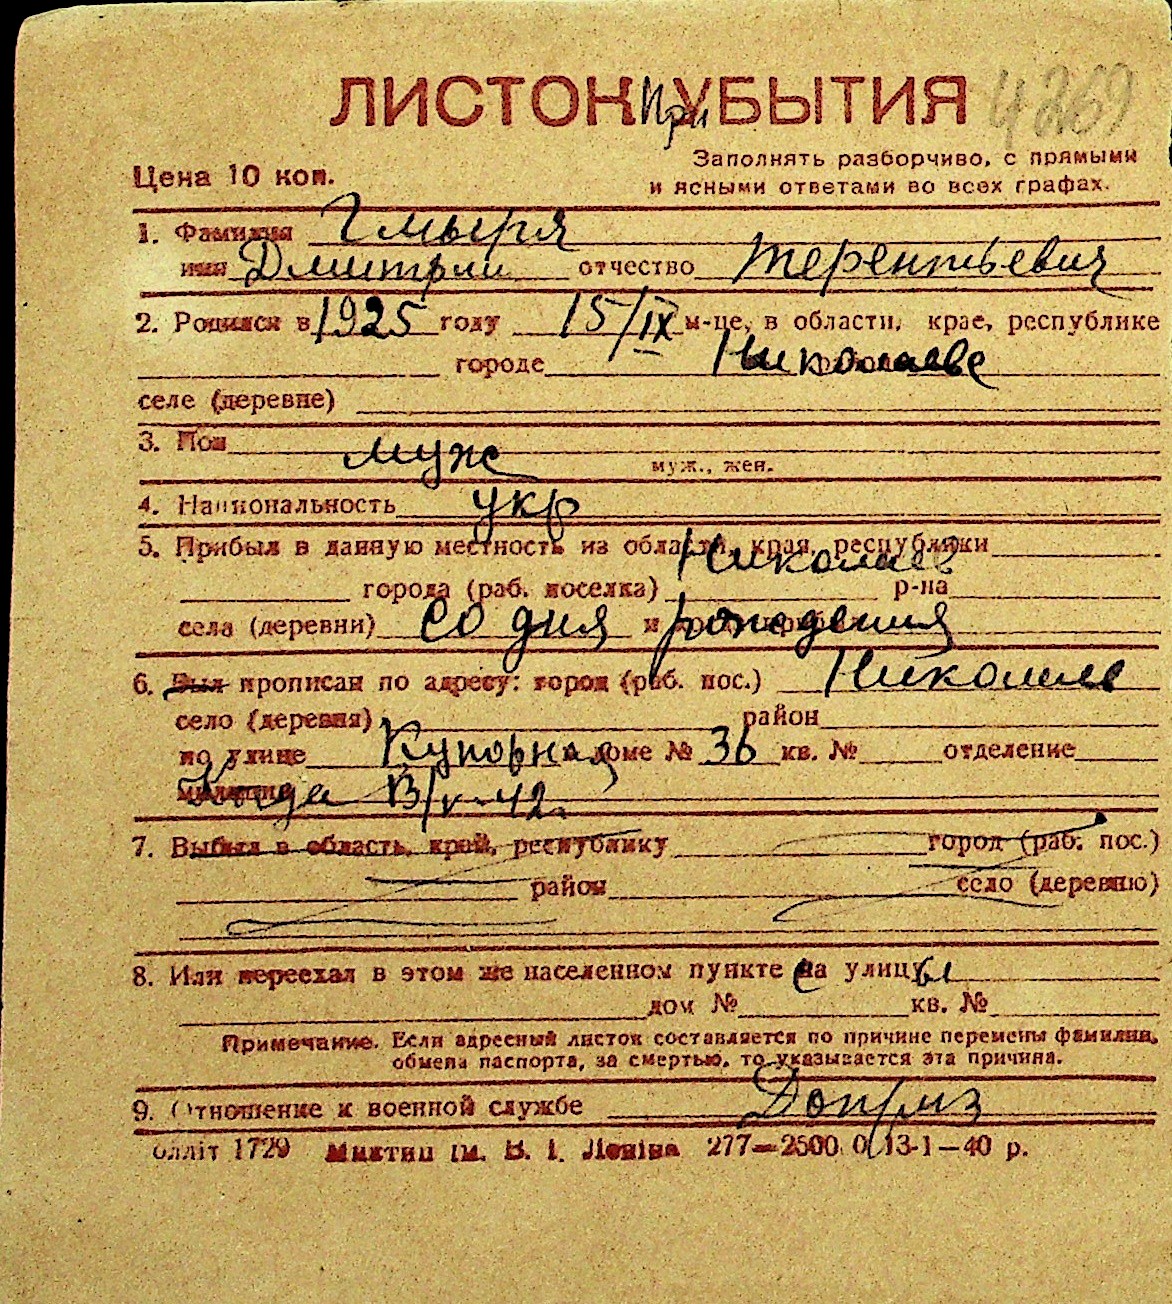 ЛИСТОК При УБЫТИЯ 4269
Цена 10 коп.
Заполнять разборчиво, с прямыми
и ясными ответами во всех графах.
1. Фамилия Гмыря
имя Дмитрий отчество Терентьевич
2. Родился в 1925 году 15/IX м-це, в области, крае, республике
городе Николаеве
селе (деревне)
3. Пол муж
муж., жен.
4. Национальность укр
5. Прибыл в данную местность из области, края, республики
Николаев
города (раб. поселка) р-на
села (деревни) со дня рождения
6. Был прописан по адресу: город (раб. пос.) Николаев
село (деревня) район
по улице Купорная доме № 36 кв. № отделение
милиции В/V-42.
7. Выбыл в область, край, республику город (раб. пос.)
район село (деревню)
8. Или переехал в этом же населенном пункте с улицы
дом № кв. №
Примечание. Если адресный листок составляется по причине перемены фамилии,
обмена паспорта, за смертью, то указывается эта причина.
9. Отношение к военной службе Доприз
олліт 1729 ім. В. І. Леніна 277—2500 13-1—40 р.